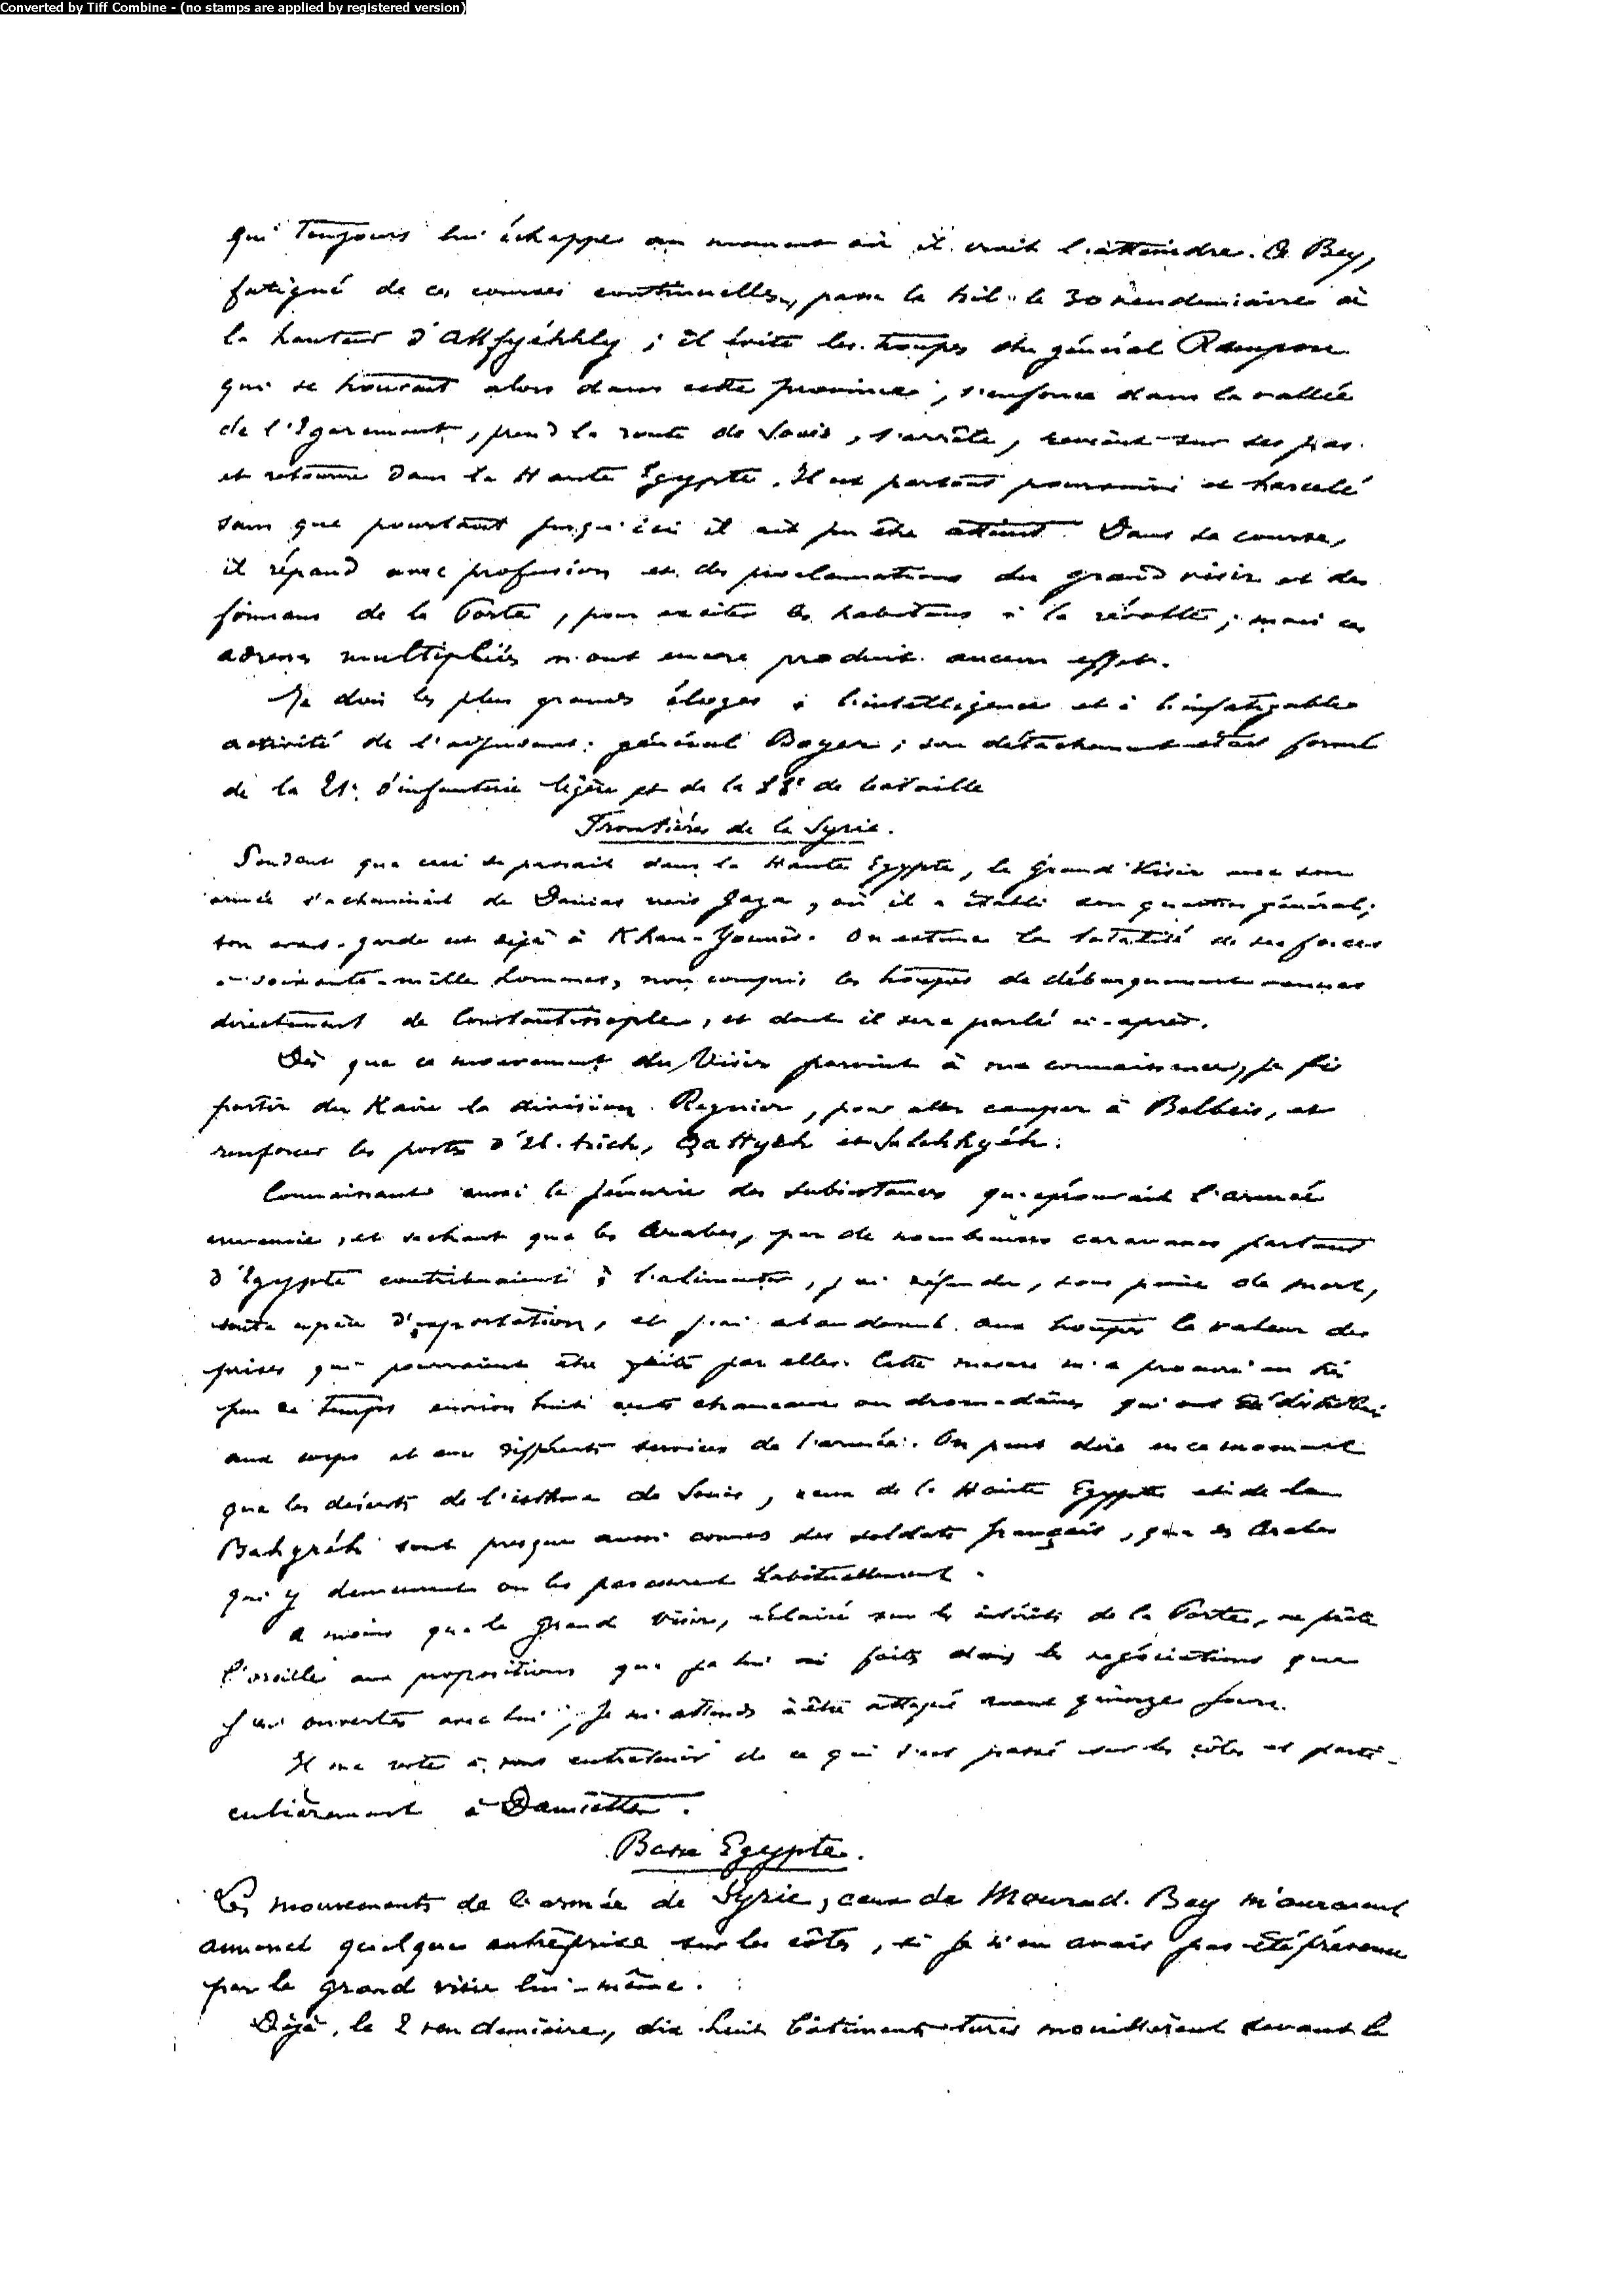 Converted by Tiff Combine - (no stamps are applied by registered version)
qui toujours lui échappe au moment où il croit l'atteindre. Ce Bey,
fatigué de ces courses continuelles, passe le Nil le 30 vendemiaire à
la hauteur d'Attfyéhhly ; il évite les troupes du général Rampon
qui se trouvant alors dans cette province, s'enfonce dans la vallée
de l'Egarement, prend la route de Souis, s'arrête, revient sur ses pas
et retourne dans la Haute Egypte. Il est partout poursuivi et harcelé
sans que pourtant jusqu'ici il ait pu être atteint. Dans sa course,
il répand avec profusion et des proclamations du grand visir et des
firmans de la Porte, pour exciter les habitans à la révolte ; mais ces
adresses multipliées n'ont encore produit aucun effet.
Je dois les plus grands éloges à l'intelligence et à l'infatigable
activité de l'adjudant-général Boyer ; son détachement était formé
de la 21e d'infanterie légère et de la 88e de bataille
Frontières de la Syrie.
Pendant que ceci se passait dans la Haute Egypte, le Grand Visir avec son
armée s'acheminait de Damas vers Gaza, où il a établi son quartier général ;
son avant-garde est déjà à Khan-Younès. On estime la totalité de ses forces
à soixante-mille hommes, non compris les troupes de débarquement venues
directement de Constantinople, et dont il sera parlé ci-après.
Dès que ce mouvement du Visir parvint à ma connaissance, je fis
partir du Kaire la division Regnier, pour aller camper à Belbeis, et
renforcer les postes d'El-Arich, Qattyeh et Salehhyéh.
Connaissant aussi la pénurie des subsistances qu'éprouvait l'armée
ennemie, et sachant que les Arabes, par de nombreuses caravanes partant
d'Egypte contribuaient à l'alimenter, j'ai défendu, sous peine de mort,
toute espèce d'exportation, et j'ai abandonné aux troupes la valeur des
prises qui pourraient être faites par elles. Cette mesure m'a procuré en très
peu de temps environ huit cents chameaux ou dromadaires qui ont été distribués
aux corps et aux différents services de l'armée. On peut dire en ce moment
que les déserts de l'isthme de Souis, ceux de la Haute Egypte et de la
Bahyréh sont presque aussi connus des soldats français, que des Arabes
qui y demeurent ou les parcourent habituellement.
A moins que le grand Visir, éclairé sur les intérêts de la Porte, ne prête
l'oreille aux propositions que je lui ai faites dans les négociations que
j'ai ouvertes avec lui, je m'attends à être attaqué avant quinze jours.
Il me reste à vous entretenir de ce qui s'est passé sur les côtes et parti-
culièrement à Damiette.
Basse Egypte.
Les mouvements de l'armée de Syrie, ceux de Mourad-Bey m'auraient
annoncé quelque entreprise sur les côtes, si je n'en avais pas été prévenu
par le grand visir lui-même.
Déjà, le 2 vendemiaire, dix huit bâtiments turcs mouillèrent devant le